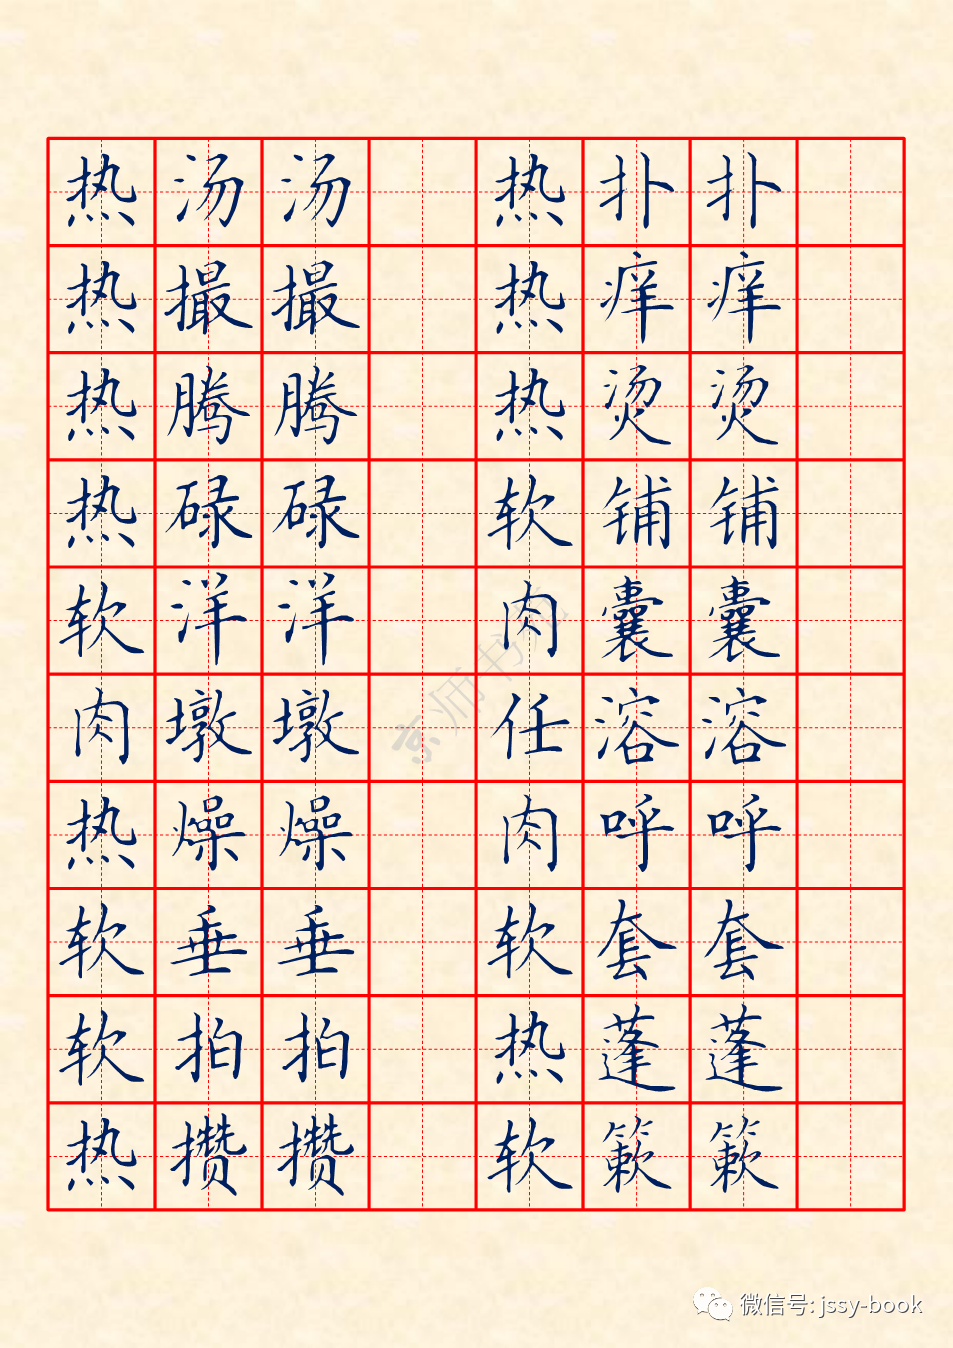 热汤汤 热扑扑
热撮撮 热痒痒
热腾腾 热烫烫
热碌碌 软铺铺
软洋洋 肉囊囊
肉墩墩 任溶溶
热燥燥 肉呼呼
软垂垂 软套套
软拍拍 热蓬蓬
热攒攒 软簌簌
京师书苑
微信号: jssy-book